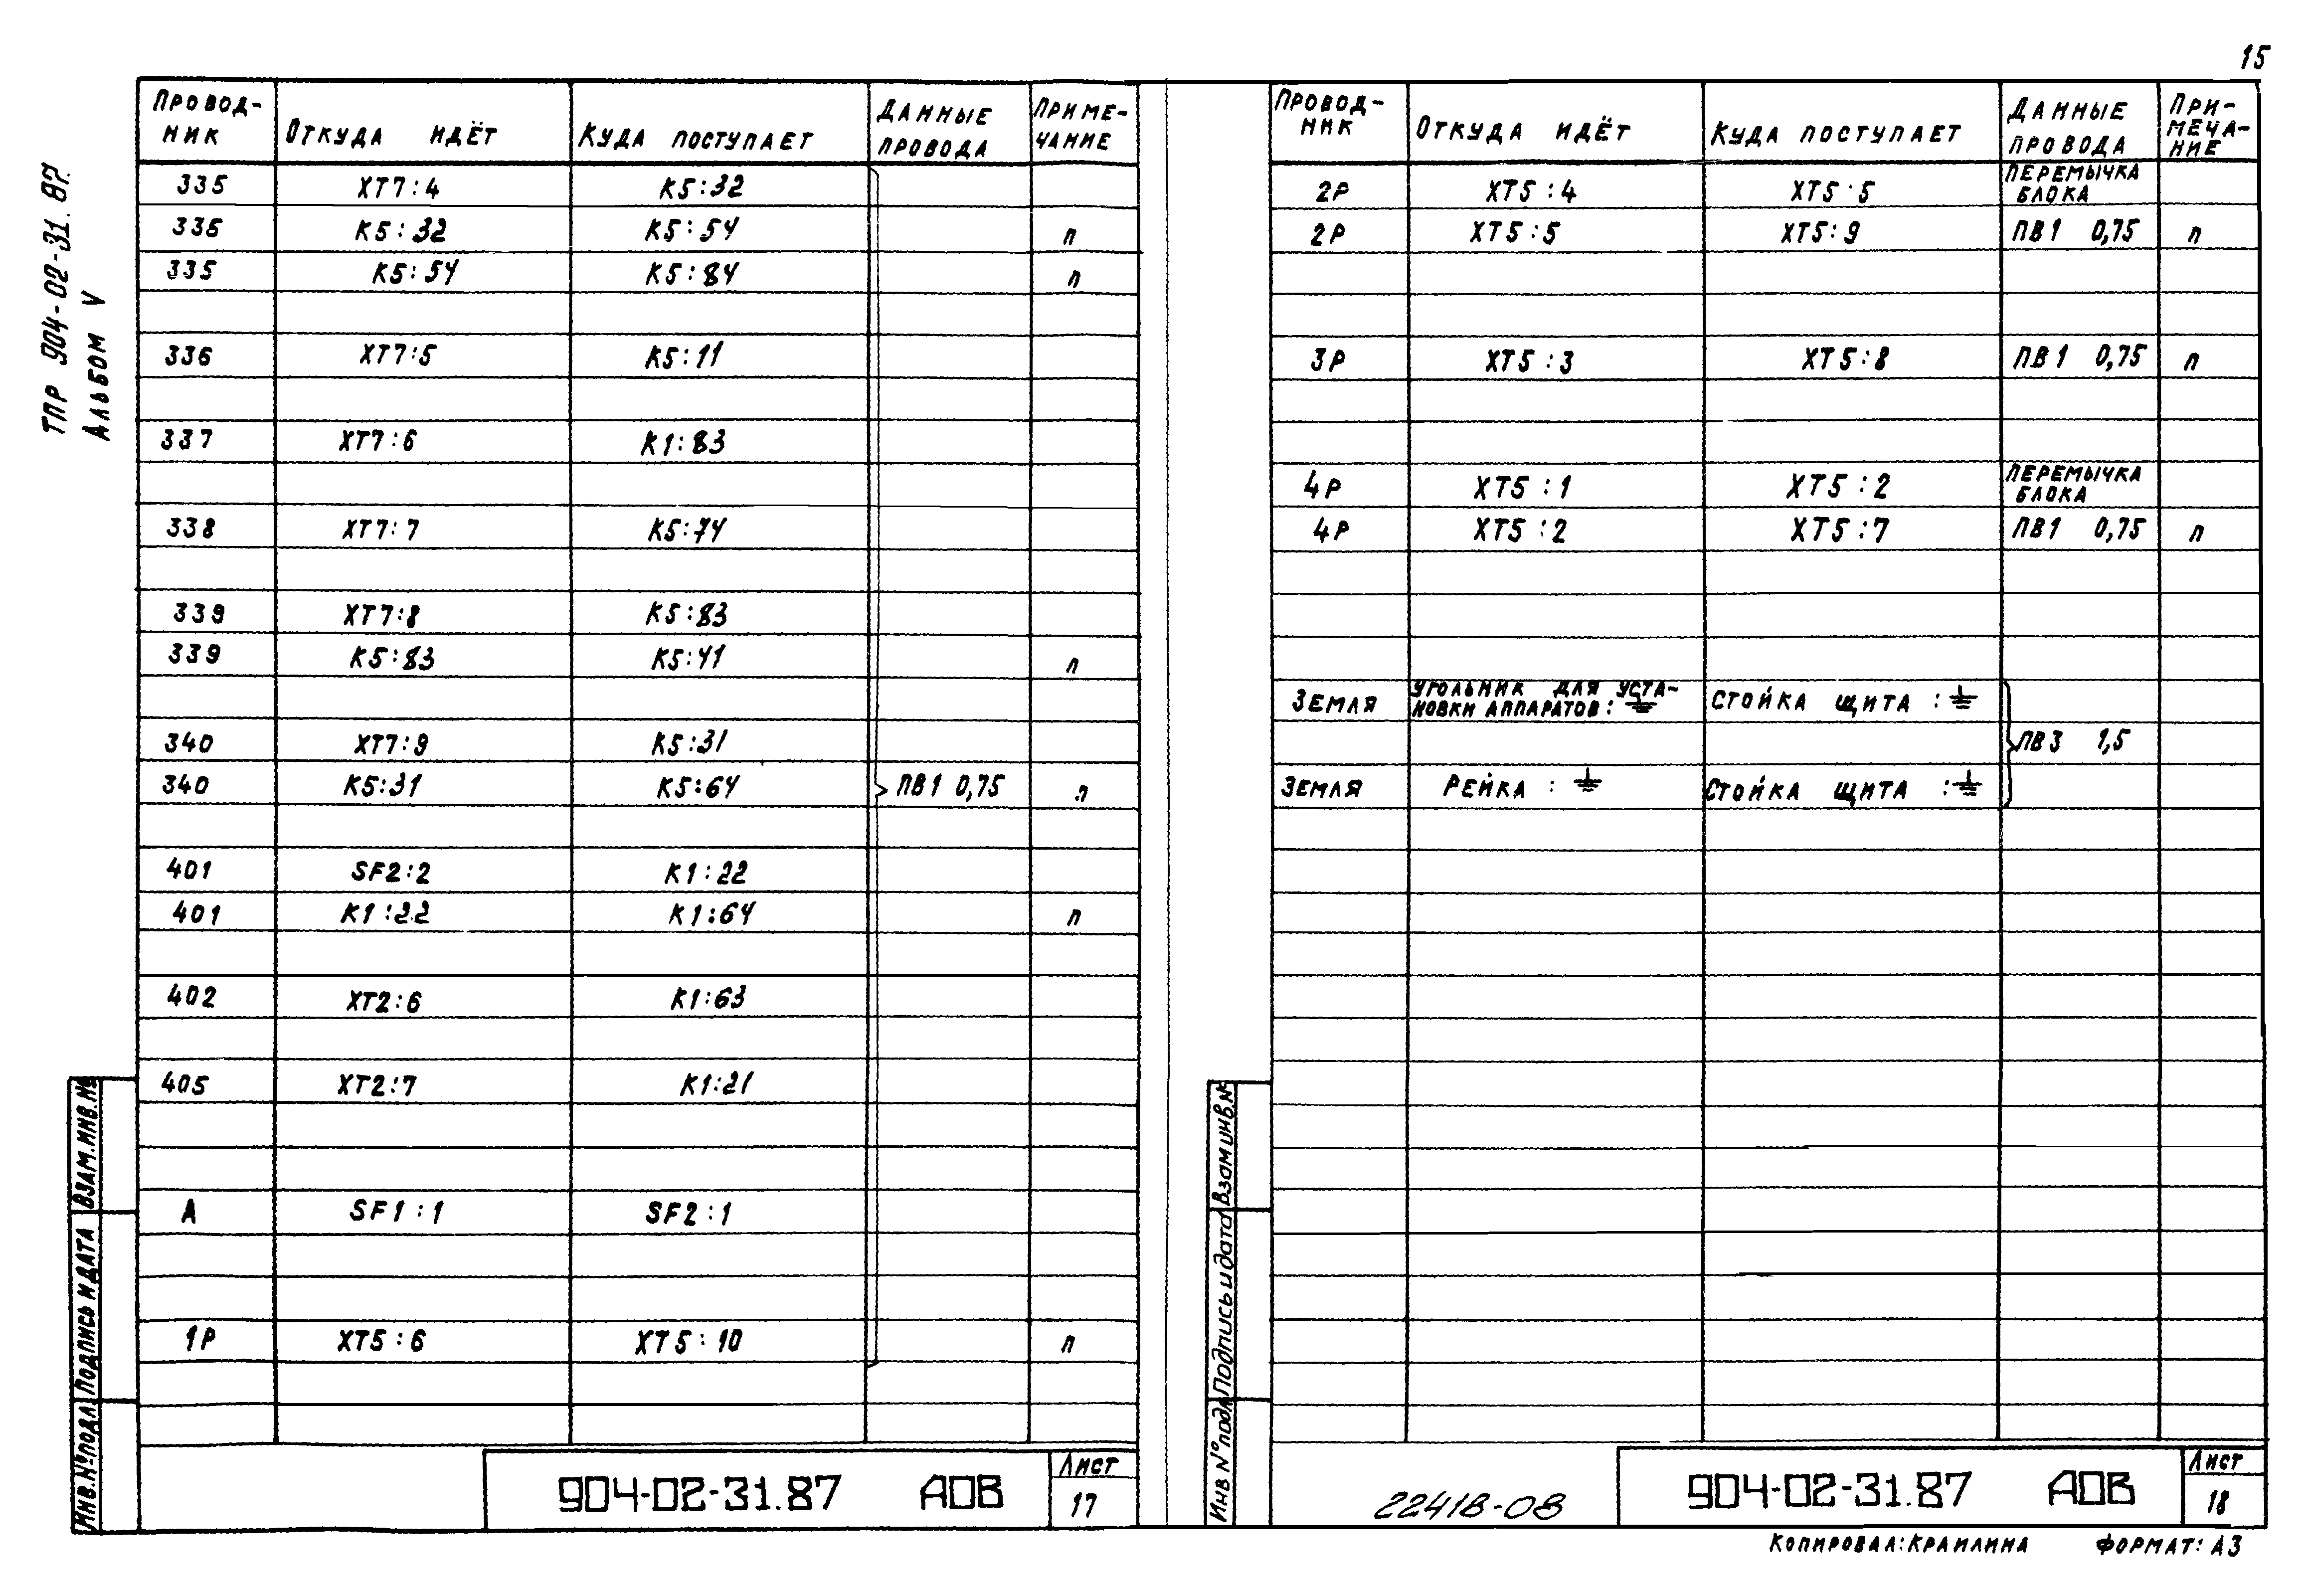 15
ТПР 904-02-31.87.
Альбом V
Провод-ник Откуда идёт Куда поступает Данные провода Приме-чание
335 XT7:4 K5:32
335 K5:32 K5:54 п
335 K5:54 K5:84 п
336 XT7:5 K5:11
337 XT7:6 K1:83
338 XT7:7 K5:74
339 XT7:8 K5:83
339 K5:83 K5:41 п
340 XT7:9 K5:31
340 K5:31 K5:64 ПВ1 0,75 п
401 SF2:2 K1:22
401 K1:22 K1:64 п
402 XT2:6 K1:63
405 XT2:7 K1:21
А SF1:1 SF2:1
1Р XT5:6 XT5:10 п
Инв.№подл Подпись и дата Взам.инв.№
904-02-31.87 АОВ
Лист
17
Провод-ник Откуда идёт Куда поступает Данные провода При-меча-ние
2Р XT5:4 XT5:5 Перемычка блока
2Р XT5:5 XT5:9 ПВ1 0,75 п
3Р XT5:3 XT5:8 ПВ1 0,75 п
4Р XT5:1 XT5:2 Перемычка блока
4Р XT5:2 XT5:7 ПВ1 0,75 п
Земля Угольник для уста-новки аппаратов: ⏚ Стойка щита : ⏚
ПВ3 1,5
Земля Рейка : ⏚ Стойка щита : ⏚
Инв №подл Подпись и дата Взам инв.№
22418-08
904-02-31.87 АОВ
Лист
18
Копировал: Краилина Формат: А3